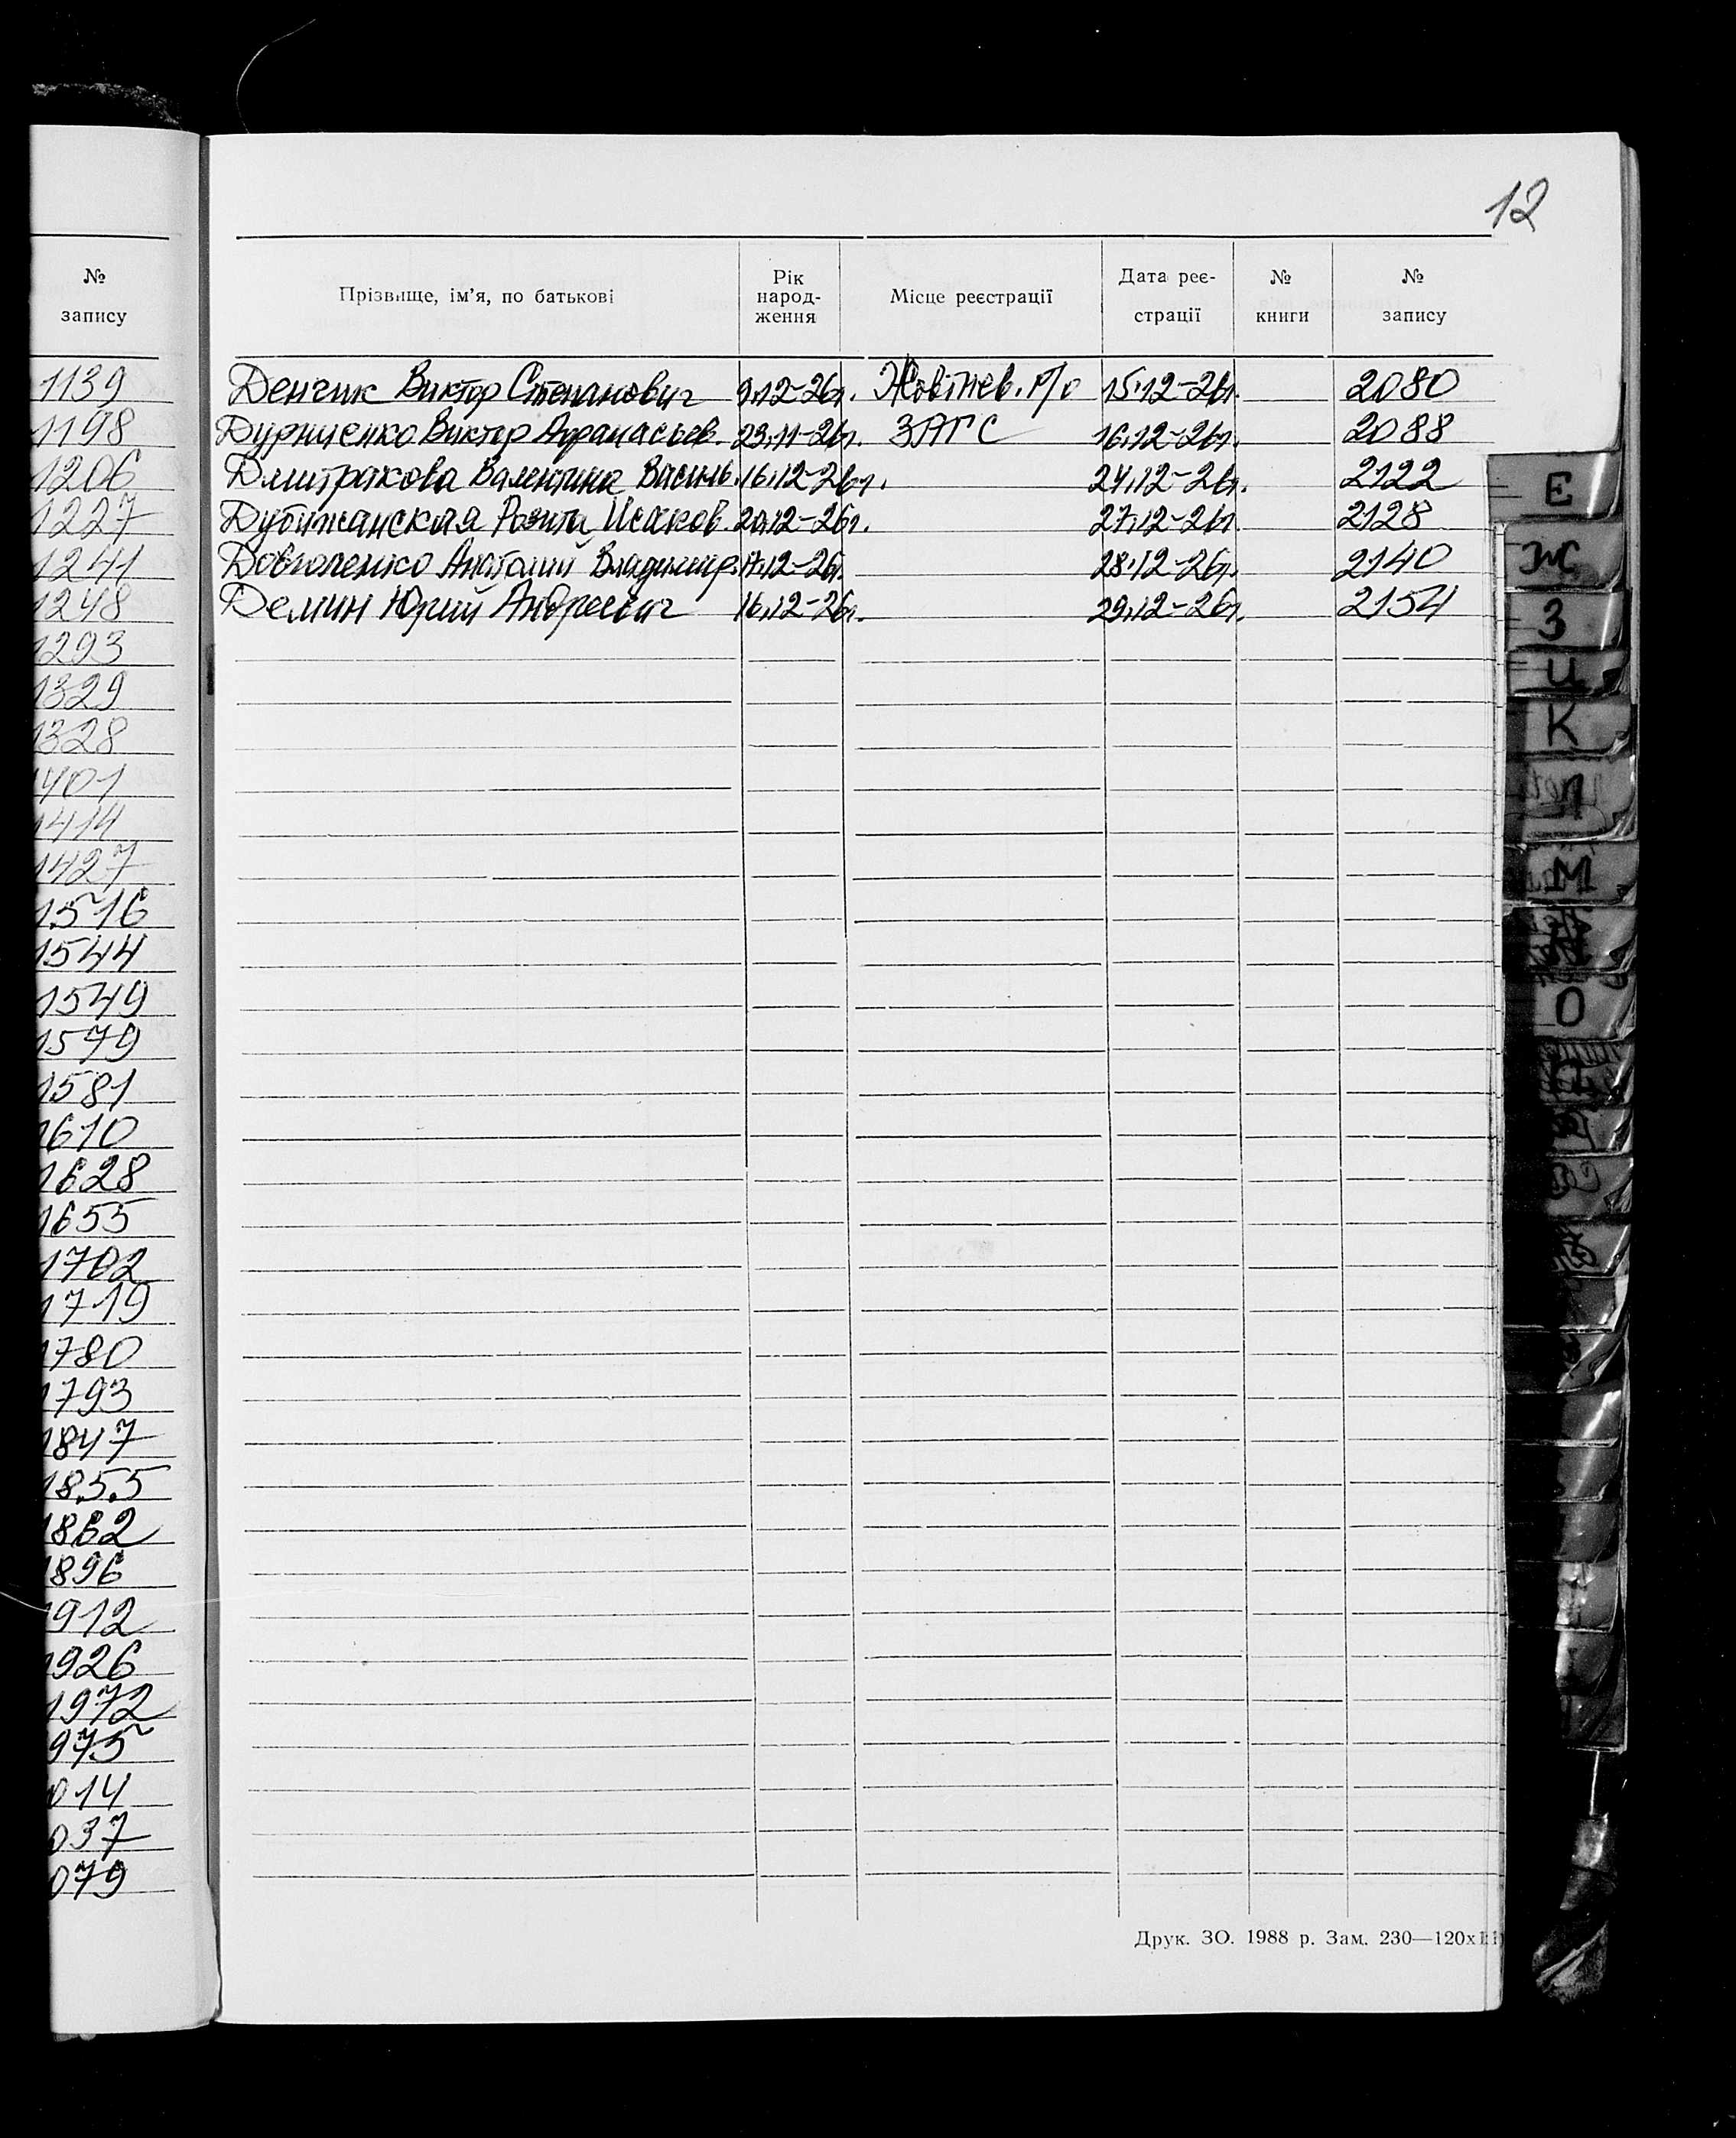 12
№ запису
1139
1198
1206
1227
1241
1248
1293
1329
1328
1401
1414
1427
1516
1544
1549
1579
1581
1610
1628
1655
1702
1719
1780
1793
1847
1855
1862
1896
1912
1926
1972
975
014
037
079
Прізвище, ім’я, по батькові Рік народ- ження Місце реєстрації Дата реє- страції № книги № запису
Денчик Виктор Степанович 9.12-26г. Жовтнев. р/о 15.12-26г. 2080
Дурниенко Виктор Афанасьев. 23.11-26г. ЗАГС 16.12-26г. 2088
Дмитракова Валентина Василь. 16.12-26г. 24.12-26г. 2122
Дубижанская Розита Исаков. 20.12-26г. 27.12-26г. 2128
Довголенко Анатолий Владимир. 17.12-26г. 28.12-26г. 2140
Демин Юрий Андреевич 16.12-26г. 29.12-26г. 2154
Е
Ж
З
И
К
Л
М
О
Друк. ЗО. 1988 р. Зам. 230—120х